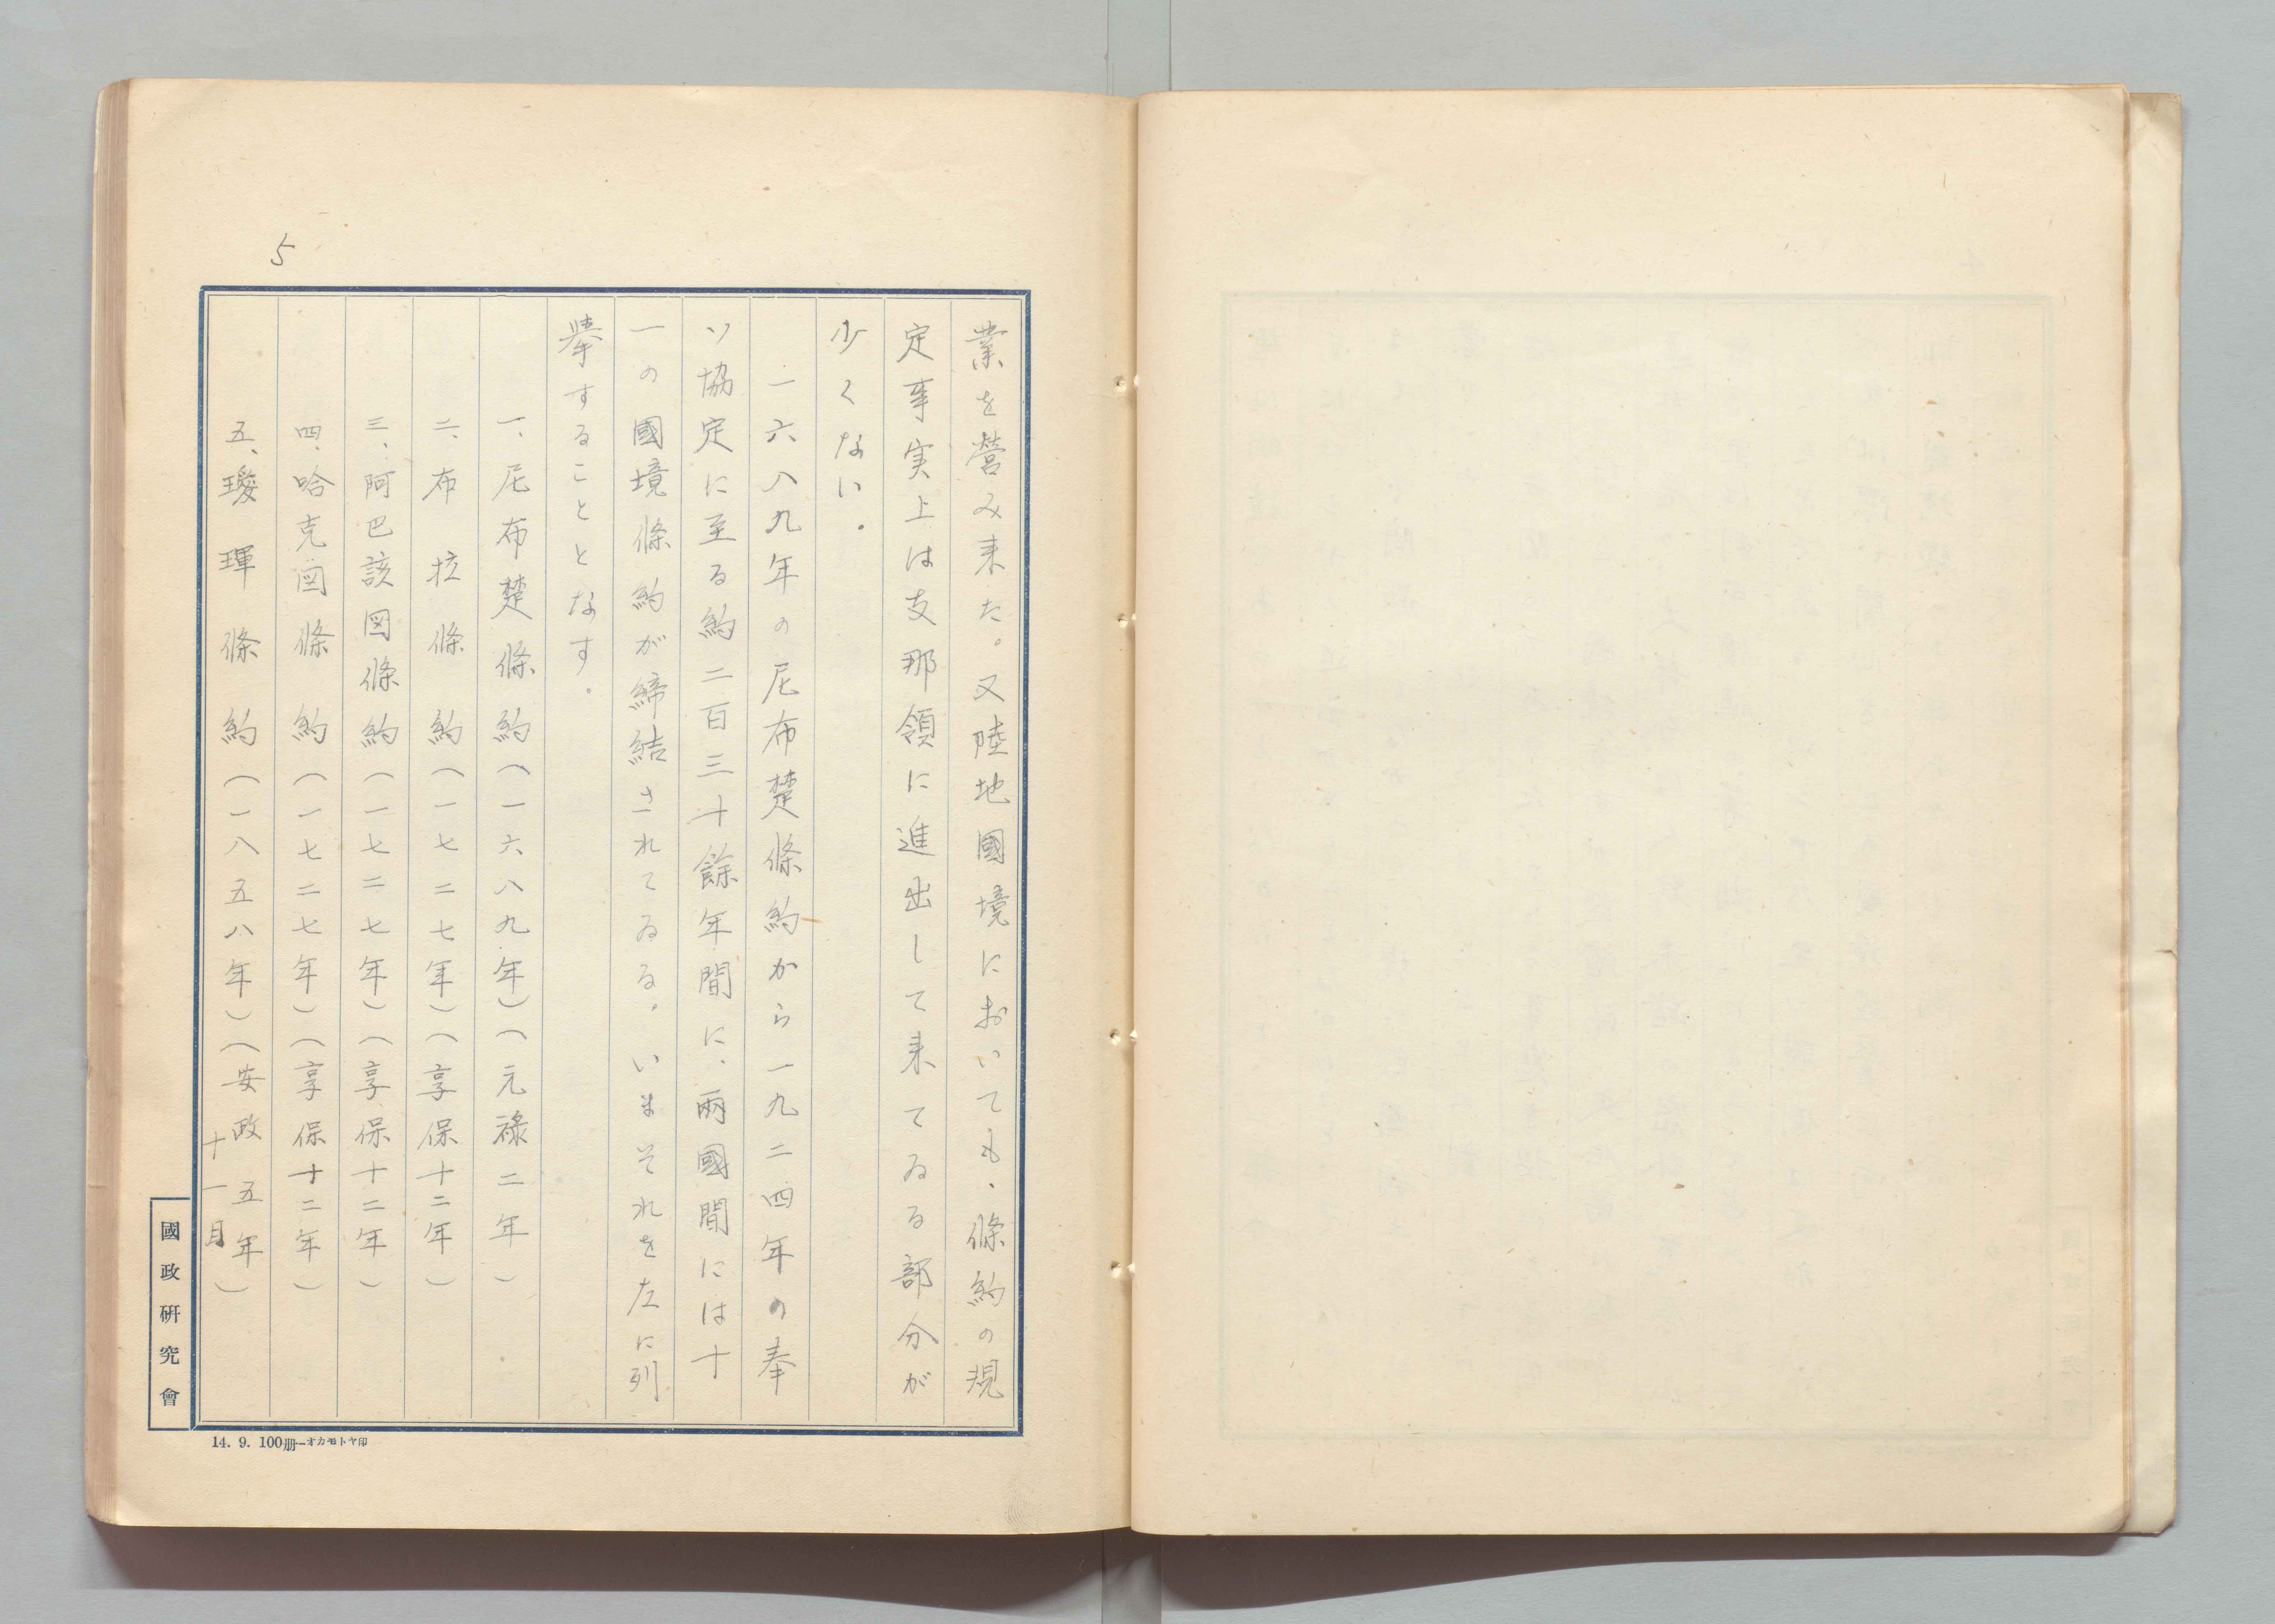 5
業を営み来た。又陸地國境においても、條約の規
定事実上は支那領に進出して来てゐる部分が
少くない。
一六八九年の尼布楚條約から一九二四年の奉
ソ協定に至る約二百三十餘年間に、兩國間には十
一の國境條約が締結されてゐる。いまそれを左に列
挙することとなす。
一、尼布楚條約(一六八九年)(元祿二年)
二、布拉條約(一七二七年)(享保十二年)
三、阿巴該図條約(一七二七年)(享保十二年)
四、哈克図條約(一七二七年)(享保十二年)
五、璦琿條約(一八五八年)(安政五年
十一月)
國政研究會
14. 9. 100册—オカモトヤ印